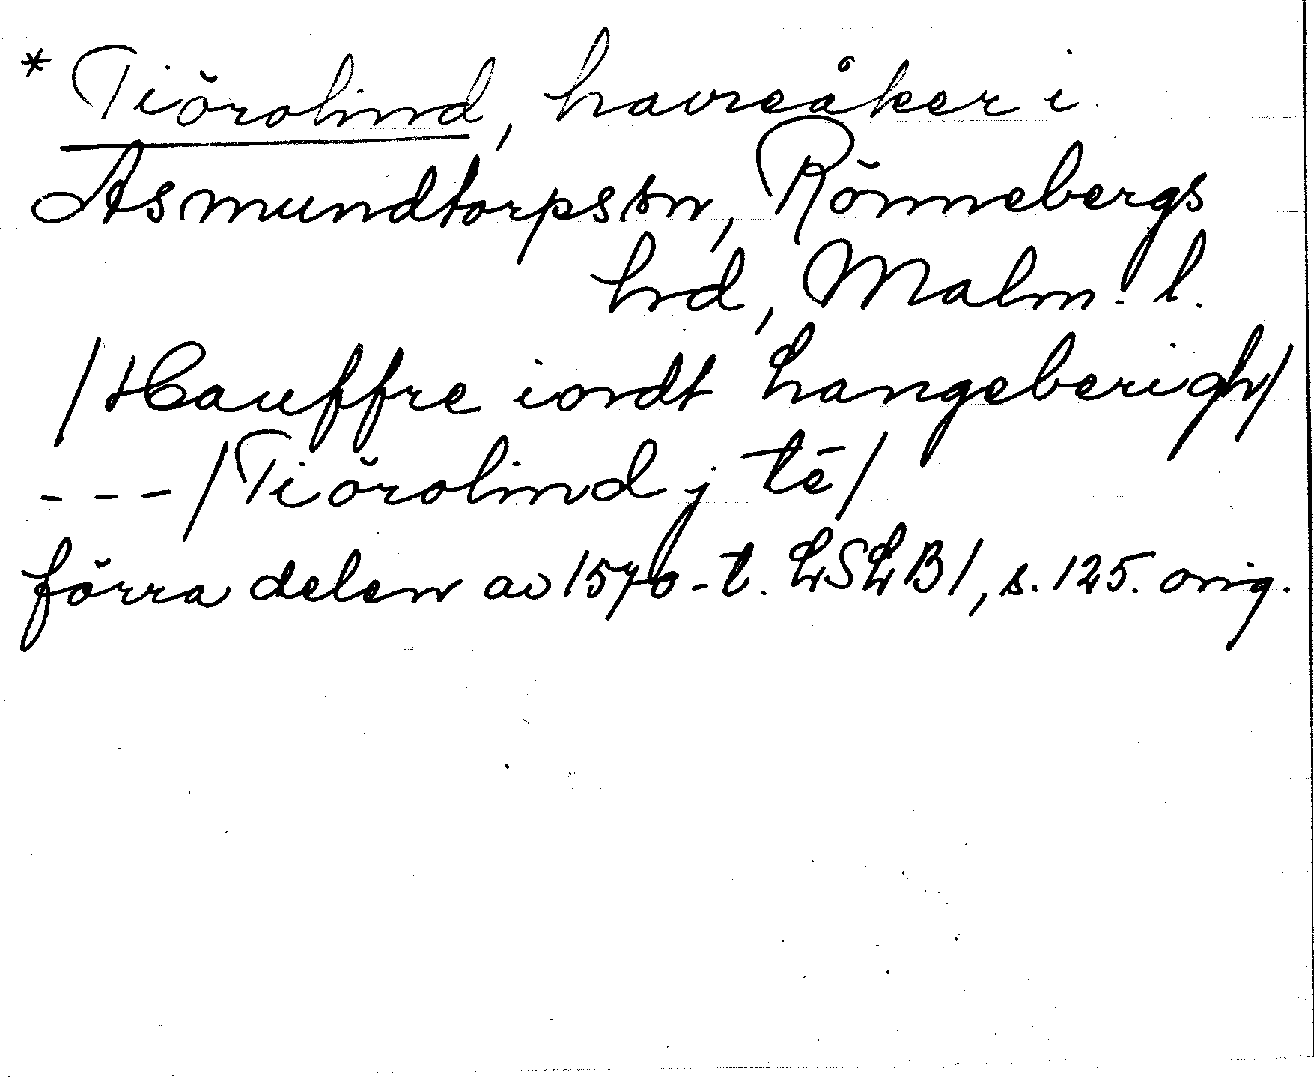 * Tiörolind, havreåker i
Asmundtorps sn, Rönnebergs
hrd, Malm. l.
/Hauffre iordt hangeberigh/
--- /Tiörolind j té/
förra delen av 1570-t. LSLB1, s. 125. orig.